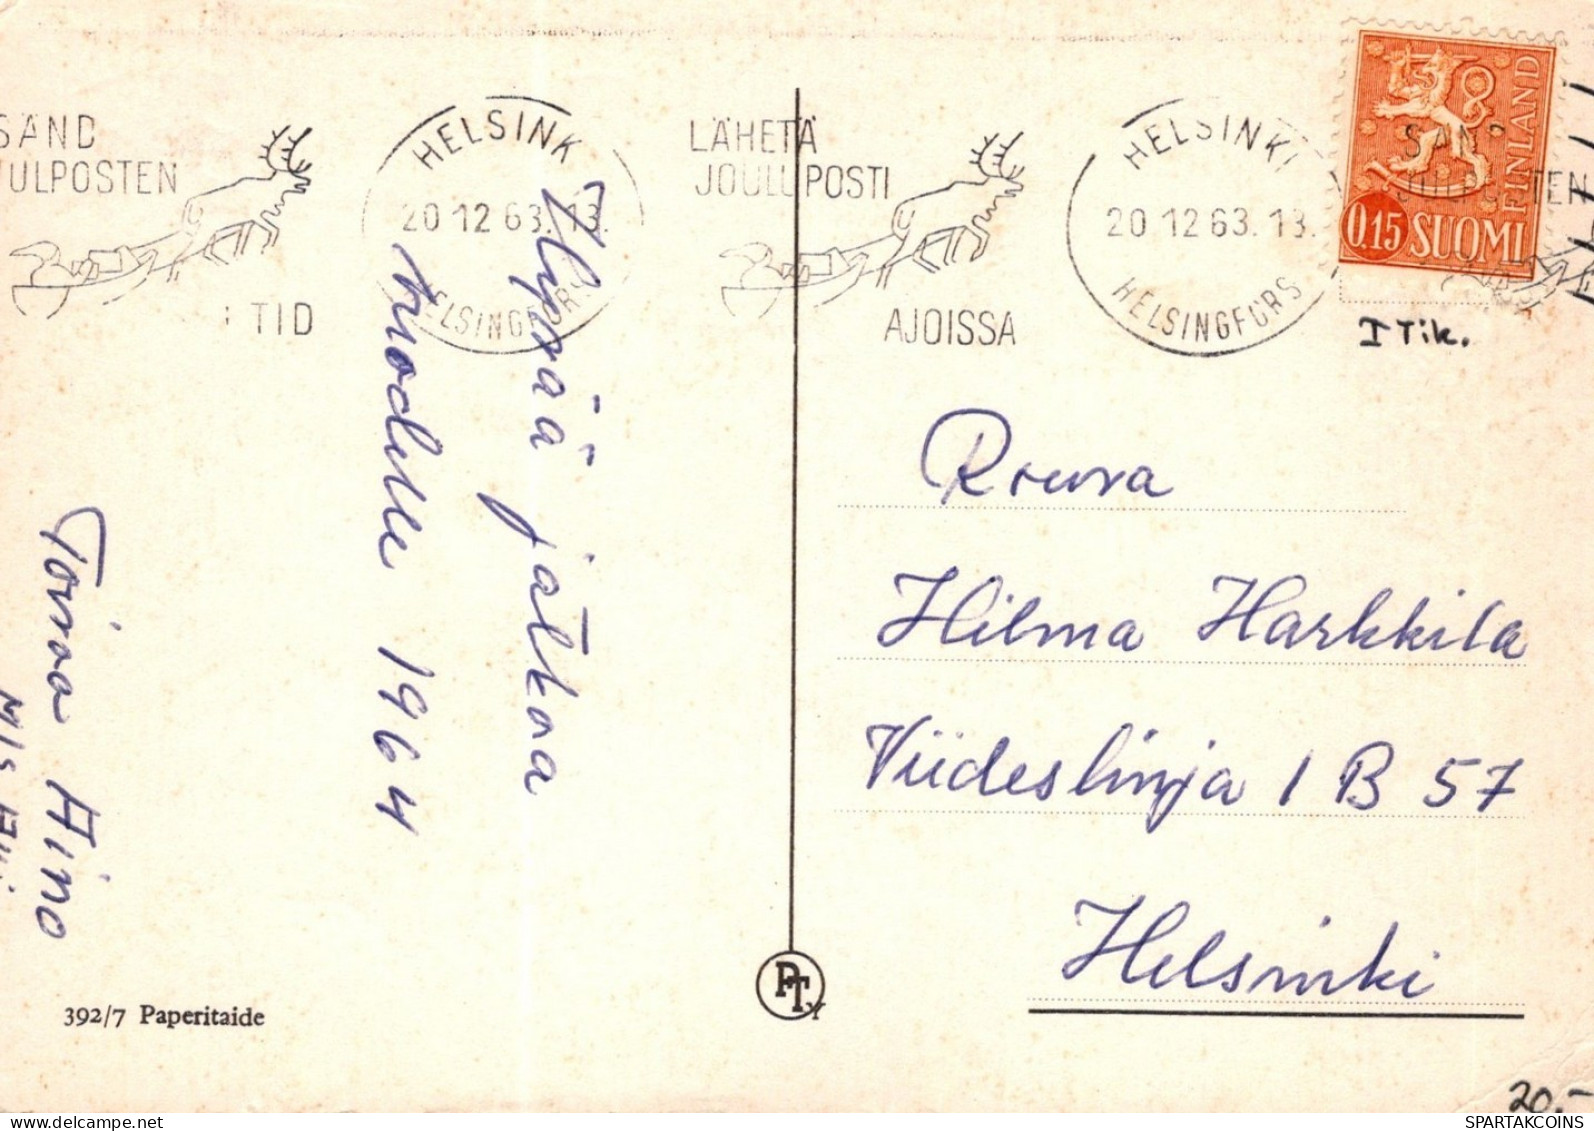 SÄND
ULPOSTEN
I TID
HELSINKI
20.12.63.13.
HELSINGFORS
LÄHETÄ
JOULUPOSTI
AJOISSA
HELSINKI
20.12.63.13.
HELSINGFORS
SUOMI FINLAND
0.15
I Tik.
jatkoa
vuodelle 1964
Toivoo Aino
Rouva
Hilma Harkkila
Viideslinja 1 B 57
Helsinki
PTY
392/7 Paperitaide
20.-
SPARTAKCOINS